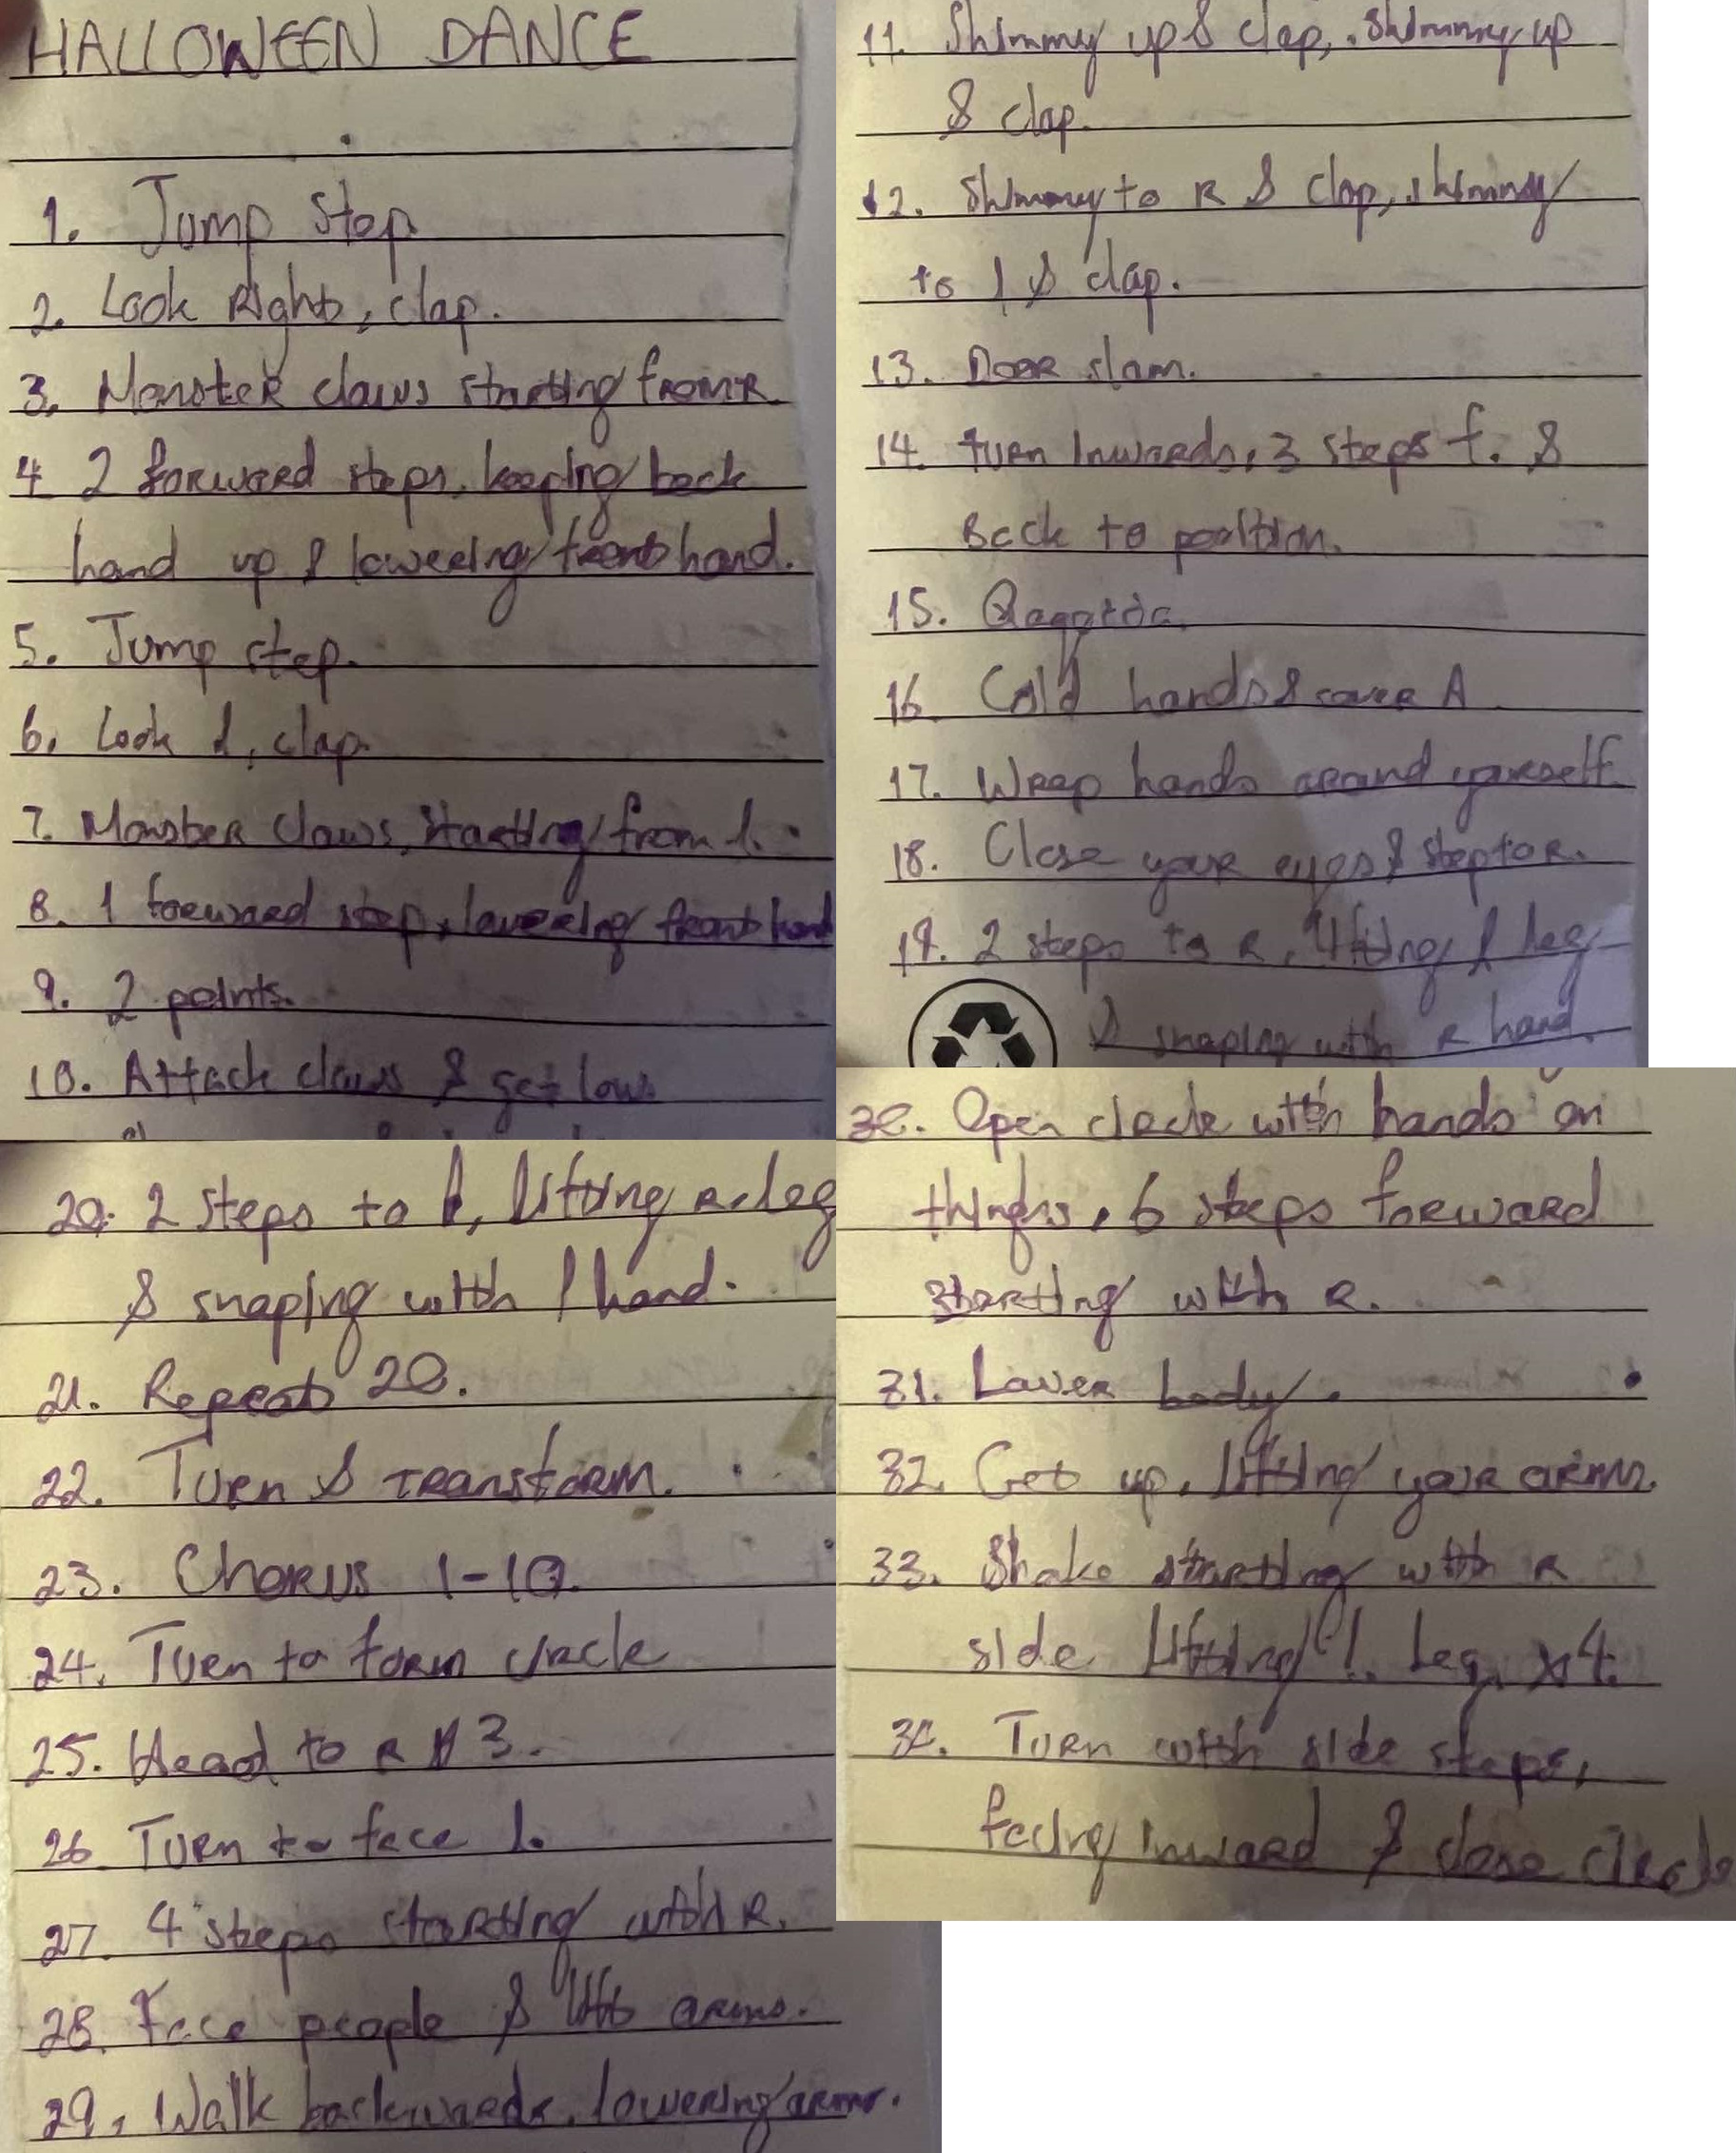 HALLOWEEN DANCE
1. Jump Step.
2. Look Right, clap.
3. Monster claws starting from R
4 2 forward steps, keeping back
hand up & lowering front hand.
5. Jump step.
6. Look l, clap.
7. Monster claws, starting from l.
8. 1 forward step, lowering front hand
9. 2 points.
10. Attack claws & get low.
11. Shimmy up & clap, shimmy up
& clap.
12. Shimmy to R & clap, shimmy
to l & clap.
13. Door slam.
14. turn inwards, 3 steps f. &
Back to position.
15.
16. Cold hands & cover A
17. Wrap hands around yourself
18. Close your eyes & step to R.
19. 2 steps to R, lifting l leg
& snaping with R hand.
20. 2 steps to l, lifting R. leg
& snaping with l hand.
21. Repeat 20.
22. Turn & transform.
23. Chorus 1-10.
24. Turn to form circle
25. Head to R 3.
26 Turn to face l.
27. 4 steps starting with R.
28. Face people & lift arms.
29. Walk backwards, lowering arms.
30. Open circle with hands on
thinghs, 6 steps forward
starting with R.
31. Lower body.
32. Get up, lifting your arms.
33. Shake starting with R
side lifting l. Leg. x4.
34. Turn with side steps,
facing inward & close circle